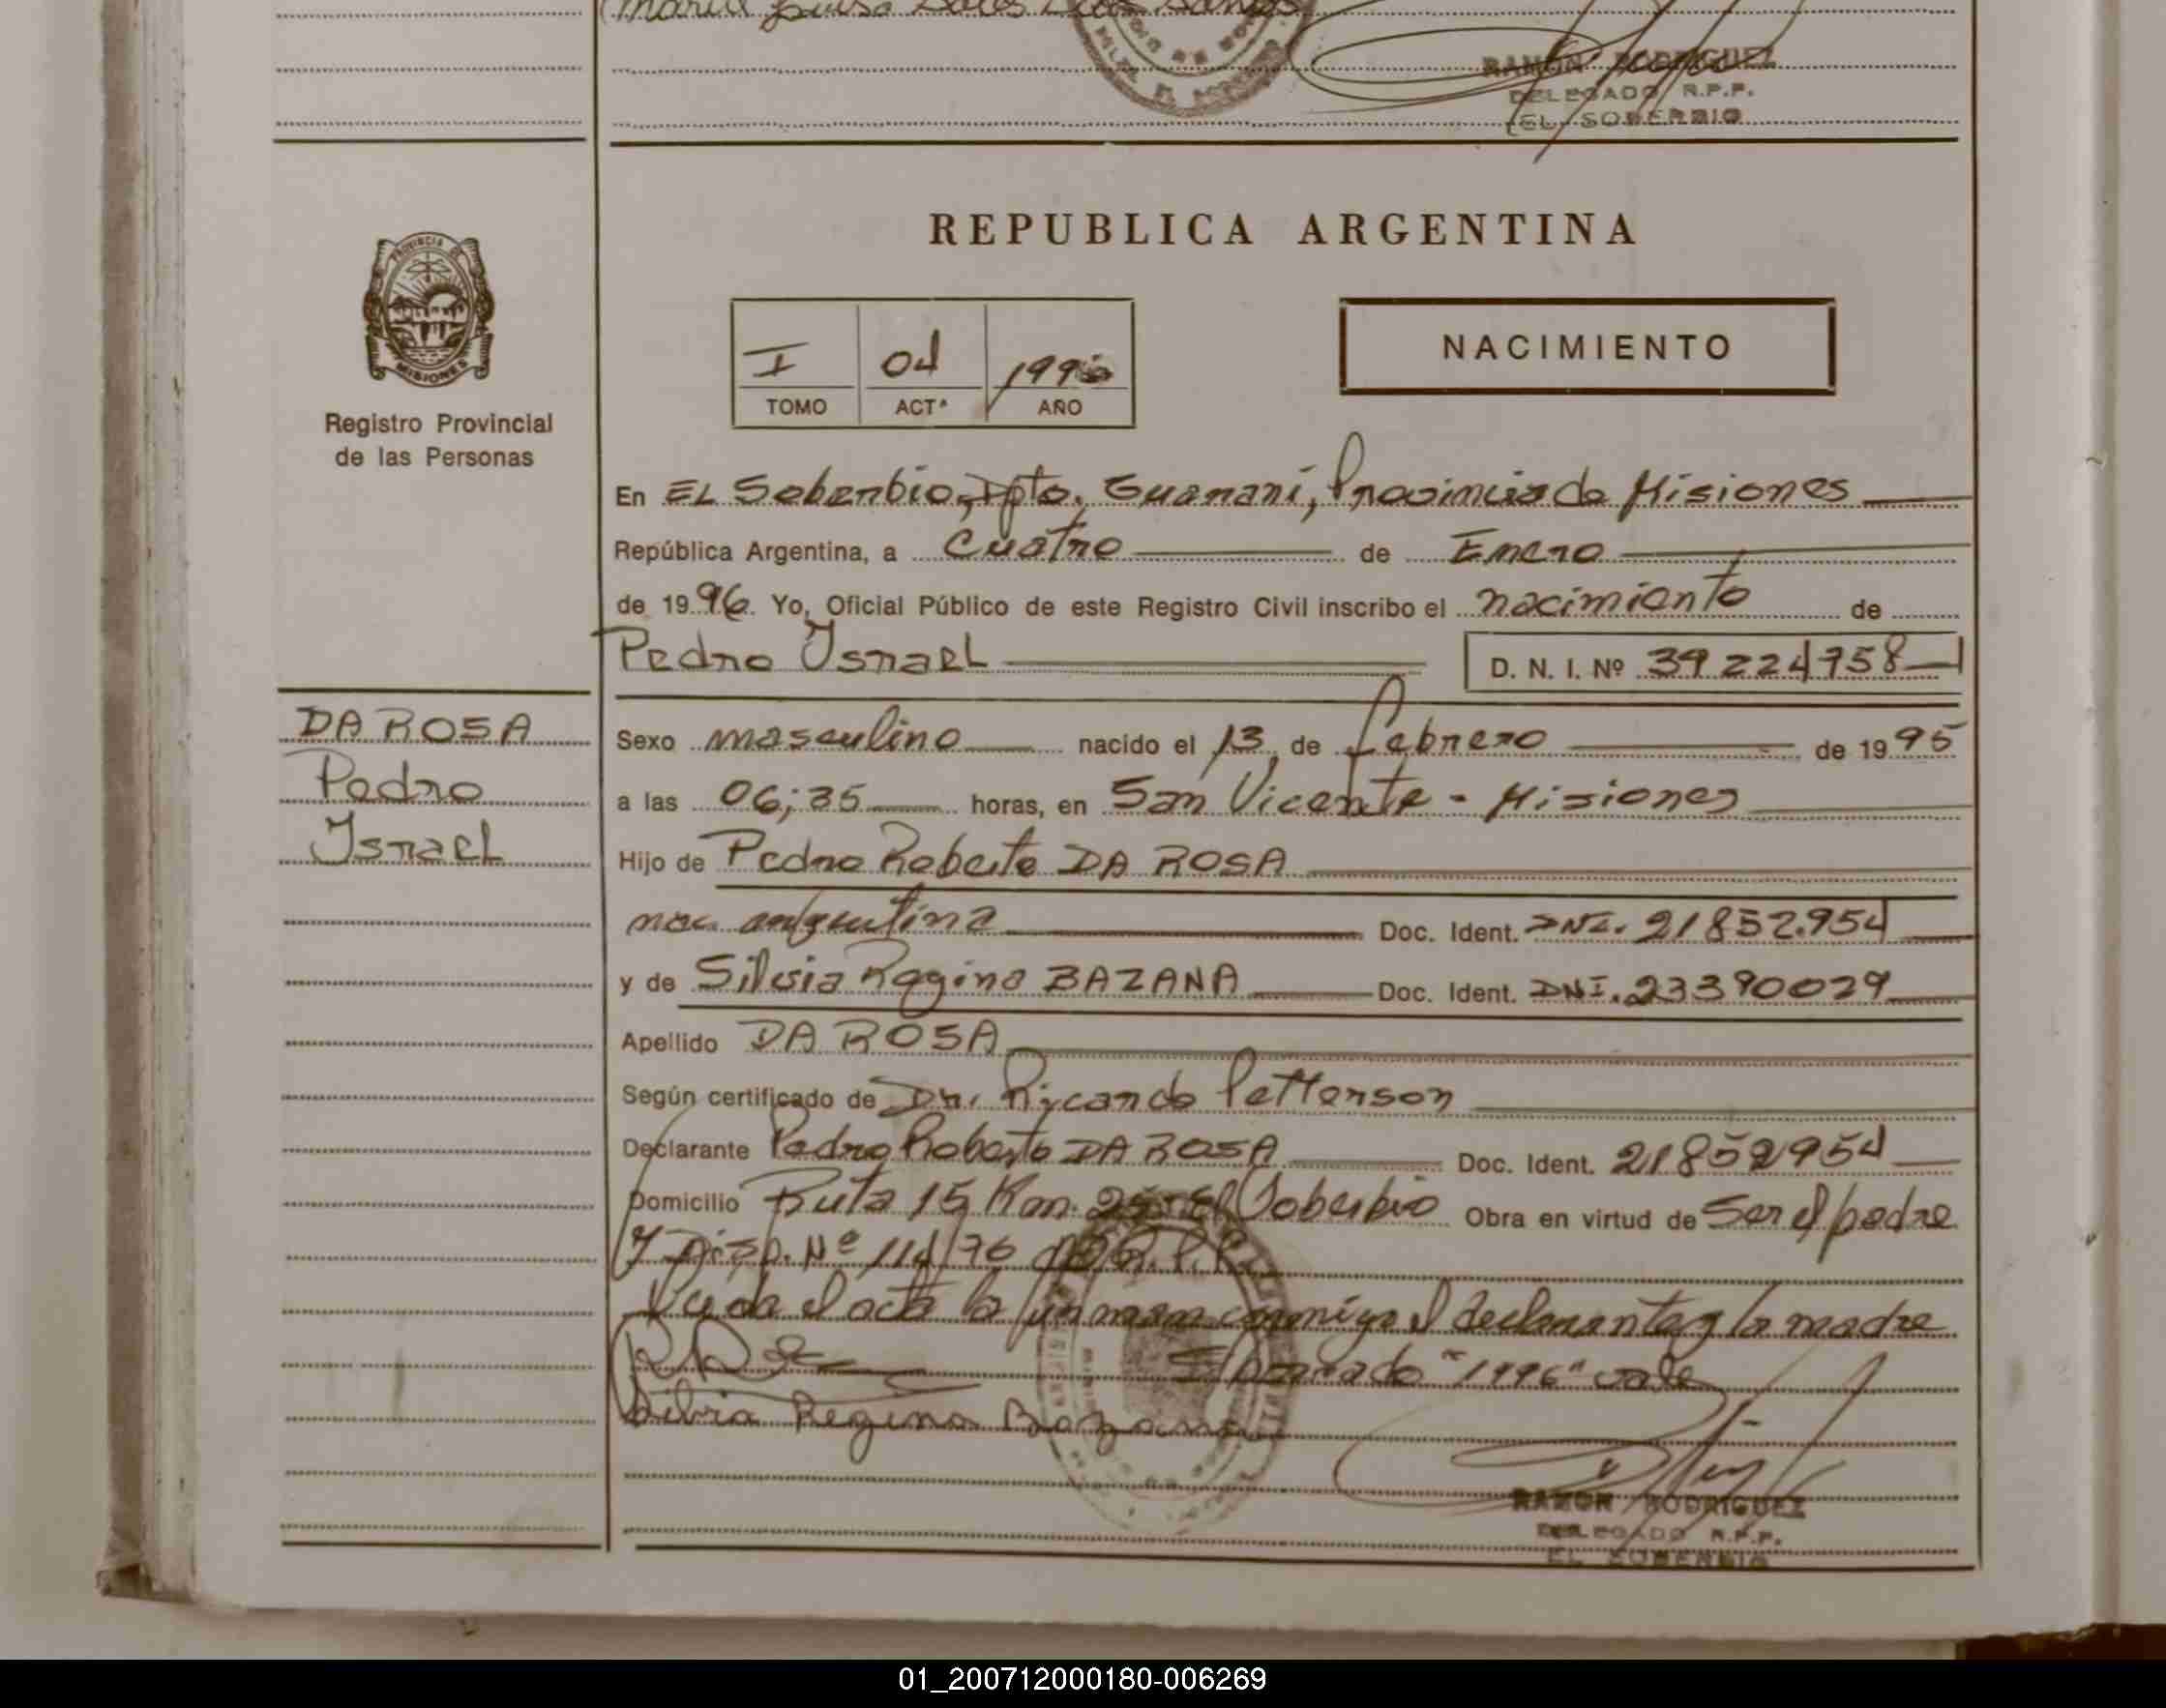 Maria Luisa
RAMON RODRIGUEZ
DELEGADO R.P.P.
EL SOBERBIO
REPUBLICA ARGENTINA
PROVINCIA DE
MISIONES
Registro Provincial
de las Personas
I 04 1996
TOMO ACTª AÑO
NACIMIENTO
En EL Soberbio, Dpto. Guaraní, Provincia de Misiones
República Argentina, a cuatro de Enero
de 1996. Yo, Oficial Público de este Registro Civil inscribo el nacimiento de
Pedro Israel D. N. I. Nº 39224758
DA ROSA
Pedro
Israel
Sexo masculino nacido el 13 de febrero de 1995
a las 06;35 horas, en San Vicente - Misiones
Hijo de Pedro Roberto DA ROSA
nac. argentina Doc. Ident. DNI. 21852.954
y de Silvia Regina BAZANA Doc. Ident. DNI. 23390029
Apellido DA ROSA
Según certificado de Dr. Ricardo Petterson
Declarante Pedro Roberto DA ROSA Doc. Ident. 21852954
Domicilio Ruta 15 Km. 25 El Soberbio Obra en virtud de Ser el padre
y Disp. Nº 114/76 R.P.P.
Leida el acta la firman conmigo el declarante y la madre
"1996" vale
Silvia Regina Bazana
RAMON RODRIGUEZ
DELEGADO R.P.P.
EL SOBERBIO
01_200712000180-006269